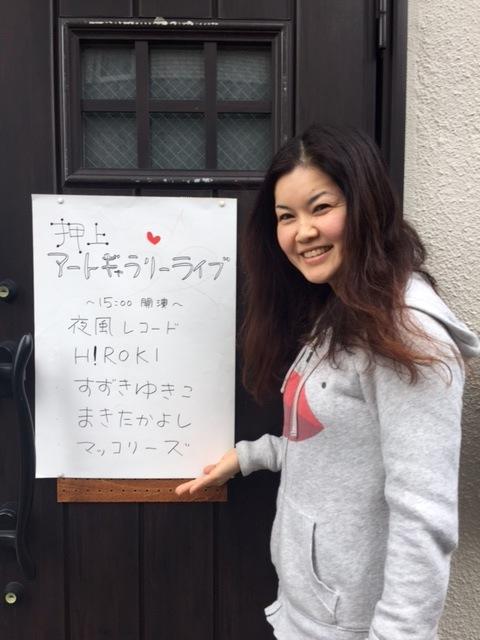 押上
アートギャラリーライブ
~15:00 開演~
夜風レコード
H!ROKI
すずきゆきこ
まきたかよし
マッコリーズ